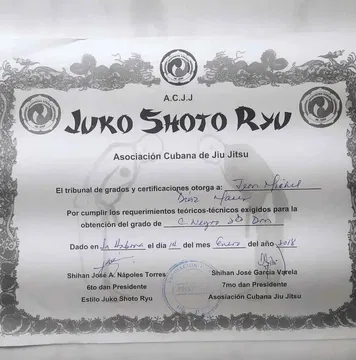 A.C.J.J
JUKO SHOTO RYU
Asociación Cubana de Jiu Jitsu
El tribunal de grados y certificaciones otorga a: Jean Michel
Diaz
Por cumplir los requerimientos teóricos-técnicos exigidos para la
obtención del grado de C. Negro Dan
Dado en La Habana el día 14 del mes Enero del año 2018
Shihan José A. Nápoles Torres
6to dan Presidente
Estilo Juko Shoto Ryu
Shihan José García Varela
7mo dan Presidente
Asociación Cubana Jiu Jitsu